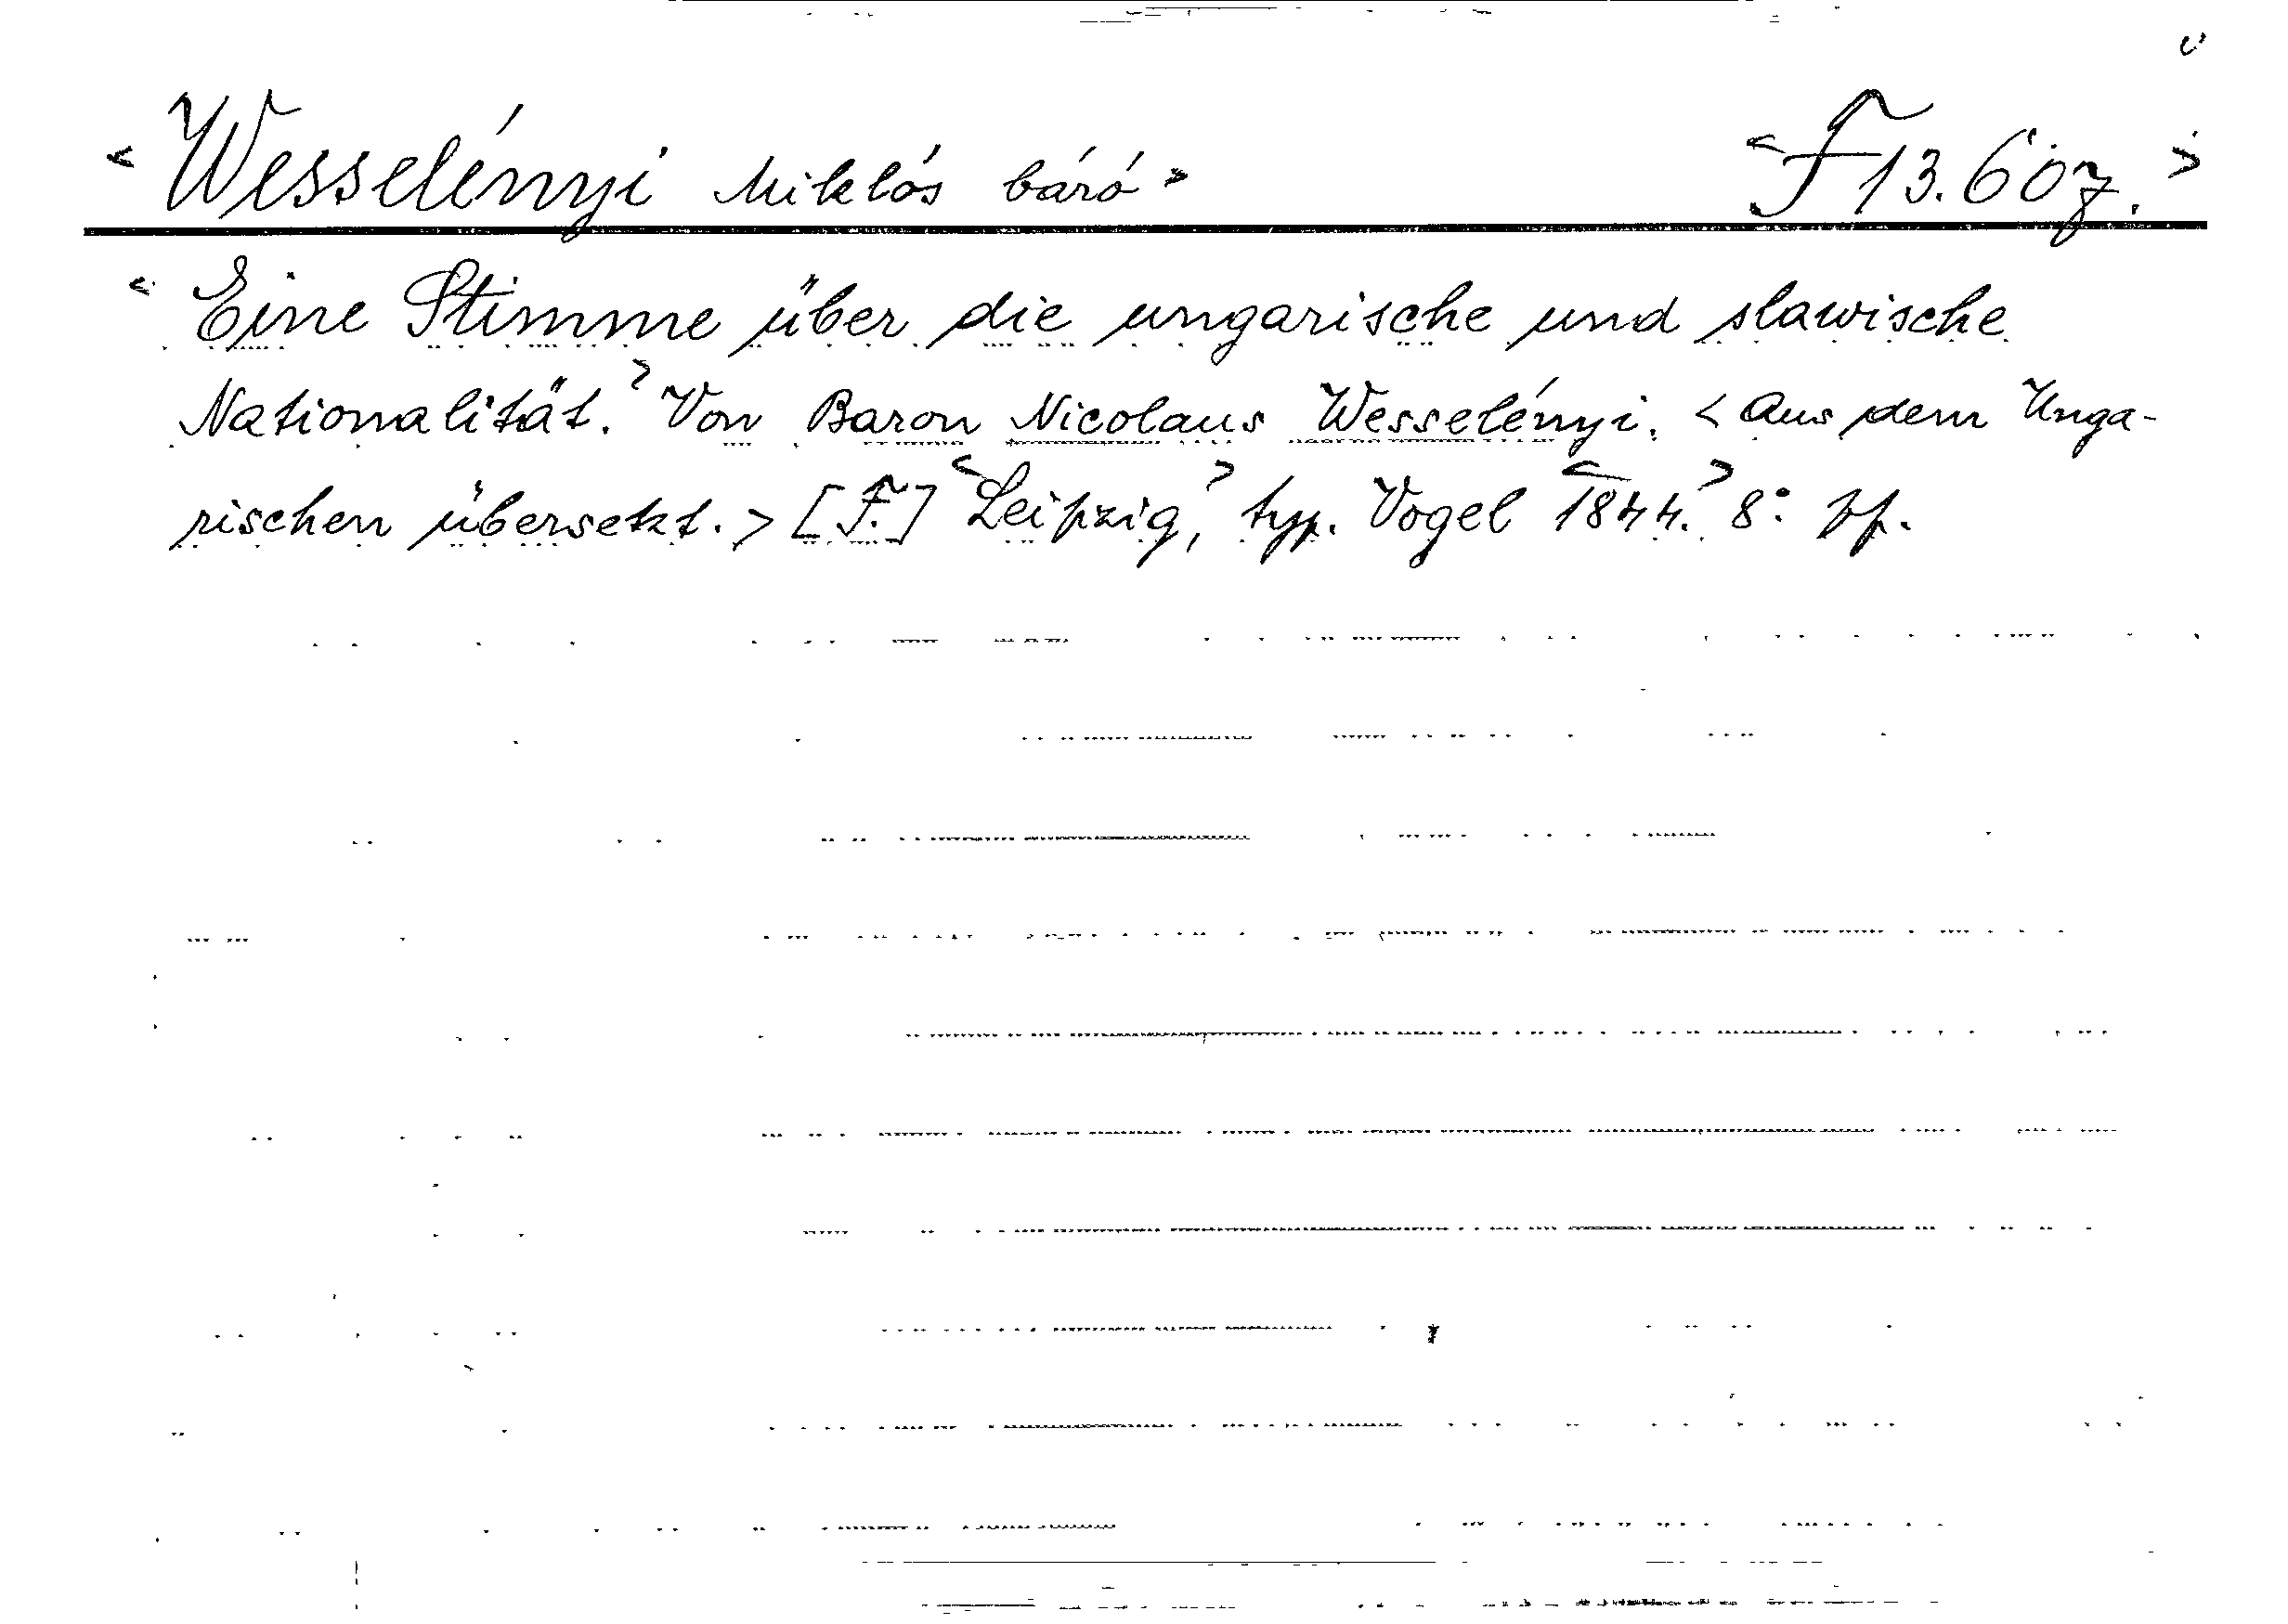 < Wesselényi Miklós báró > < F 13.607. >
< Eine Stimme über die ungarische und slawische
Nationalität. > Von Baron Nicolaus Wesselényi. < Aus dem Unga-
rischen übersetzt. > [F.] < Leipzig, > typ. Vogel < 1844. > 8°